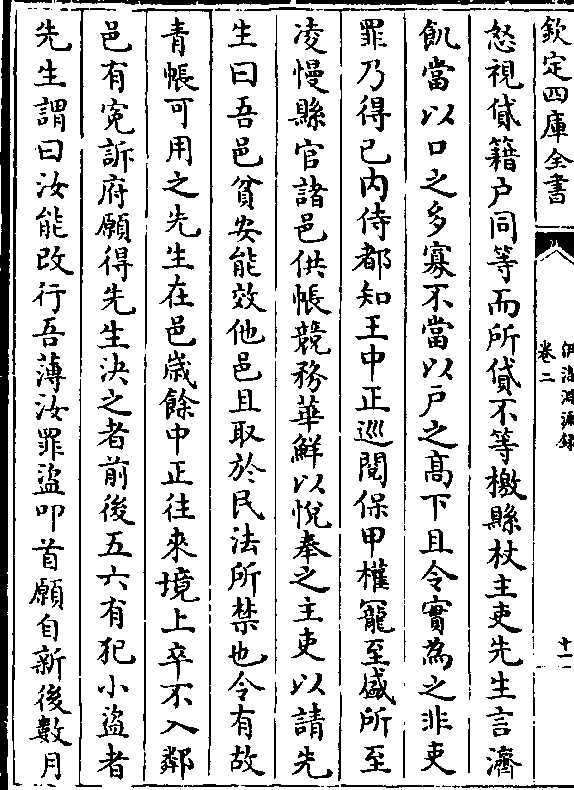 欽定四庫全書
伊洛淵源録
卷二
十一
怒視貸籍户同等而所貸不等檄縣杖主吏先生言濟
飢當以口之多寡不當以戸之髙下且令實為之非吏
罪乃得已内侍都知王中正巡閲保甲權寵至盛所至
凌慢縣官諸邑供帳競務華鮮以悅奉之主吏以請先
生曰吾邑貧安能效他邑且取於民法所禁也令有故
青帳可用之先生在邑歳餘中正往來境上卒不入鄰
邑有寃訴府願得先生決之者前後五六有犯小盗者
先生謂曰汝能改行吾薄汝罪盜叩首願自新後數月